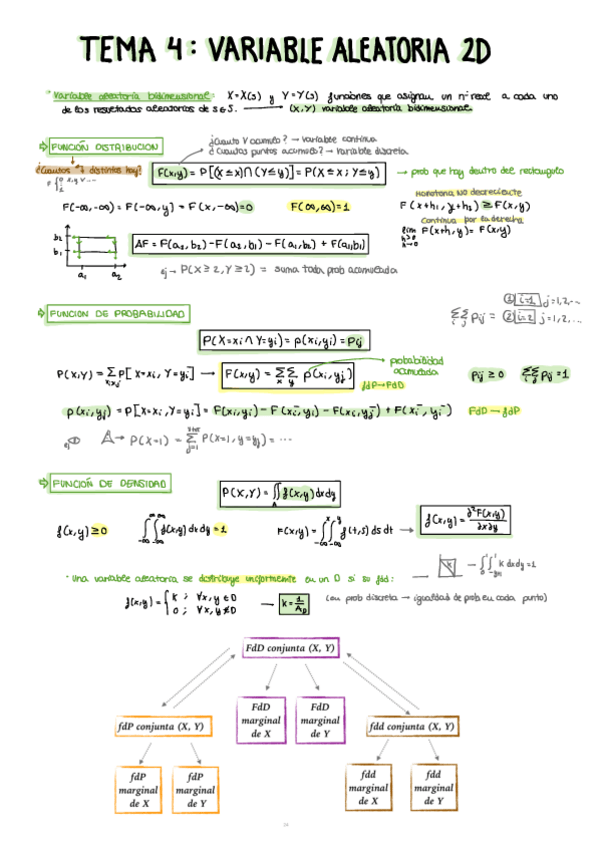 TEMA 4: VARIABLE ALEATORIA 2D
· Variable aleatoria bidimensional: X=X(s) y Y=Y(s) funciones que asignan un nº real a cada uno
de los resultados aleatorios de s∈S. → (X,Y) variable aleatoria bidimensional.
⇒ FUNCIÓN DISTRIBUCION
¿Cuanto V acumulo? → Variable continua
¿Cuantos puntos acumulo? → Variable discreta
¿Cuantos distintos hay?
F(x,y) = P[(X≤x)∩(Y≤y)] = P(X≤x; Y≤y)
→ prob que hay dentro del rectangulo
F(-∞,-∞) = F(-∞,y) = F(x,-∞) = 0
F(∞,∞) = 1
Monotona NO decreciente
F(x+h₁, y+h₂) ≥ F(x,y)
Continua por la derecha
lim F(x+h,y) = F(x,y)
b₂
b₁
a₁ a₂
ΔF = F(a₂,b₂) - F(a₂,b₁) - F(a₁,b₂) + F(a₁,b₁)
ej → P(X≥2, Y≥2) = suma toda prob acumulada
⇒ FUNCION DE PROBABILIDAD
P(X=xi ∩ Y=yi) = p(xi,yi) = Pij
ΣΣ Pij =
① i=1 j=1,2,...
② i=2 j=1,2,...
P(X,Y) = Σ P[X=xi, Y=yi] →
F(x,y) = ΣΣ p(xi,yj)
probabilidad
acumulada
fdP→FdD
Pij ≥ 0 ΣΣ Pij = 1
p(xi,yj) = P[X=xi, Y=yi] = F(xi,yi) - F(xi⁻,yi) - F(xi,yj⁻) + F(xi⁻,yi⁻)
FdD → fdP
P(X=1) = Σ P(X=1, y=yj) = ...
⇒ FUNCIÓN DE DENSIDAD
P(X,Y) = ∬ f(x,y) dxdy
A
f(x,y) ≥ 0
∫∫ f(x,y) dxdy = 1
F(x,y) = ∫∫ f(t,s) ds dt →
f(x,y) = ∂²F(x,y) / ∂x∂y
∫∫ k dxdy = 1
· Una variable aleatoria se distribuye uniformemente en un D si su fdd:
f(x,y) = { k ; ∀x,y ∈ D
0 ; ∀x,y ∉ D
— k = 1/A_D
(en prob discreta → igualdad de prob en cada punto)
FdD conjunta (X, Y)
FdD marginal de X
FdD marginal de Y
fdP conjunta (X, Y)
fdd conjunta (X, Y)
fdP marginal de X
fdP marginal de Y
fdd marginal de X
fdd marginal de Y